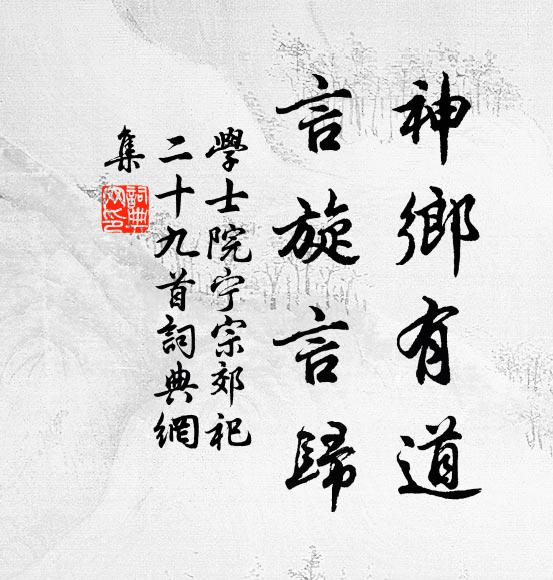 神鄉有道
言旋言歸
學士院宁宗郊祀
二十九首詞典網
集
詞典
网印